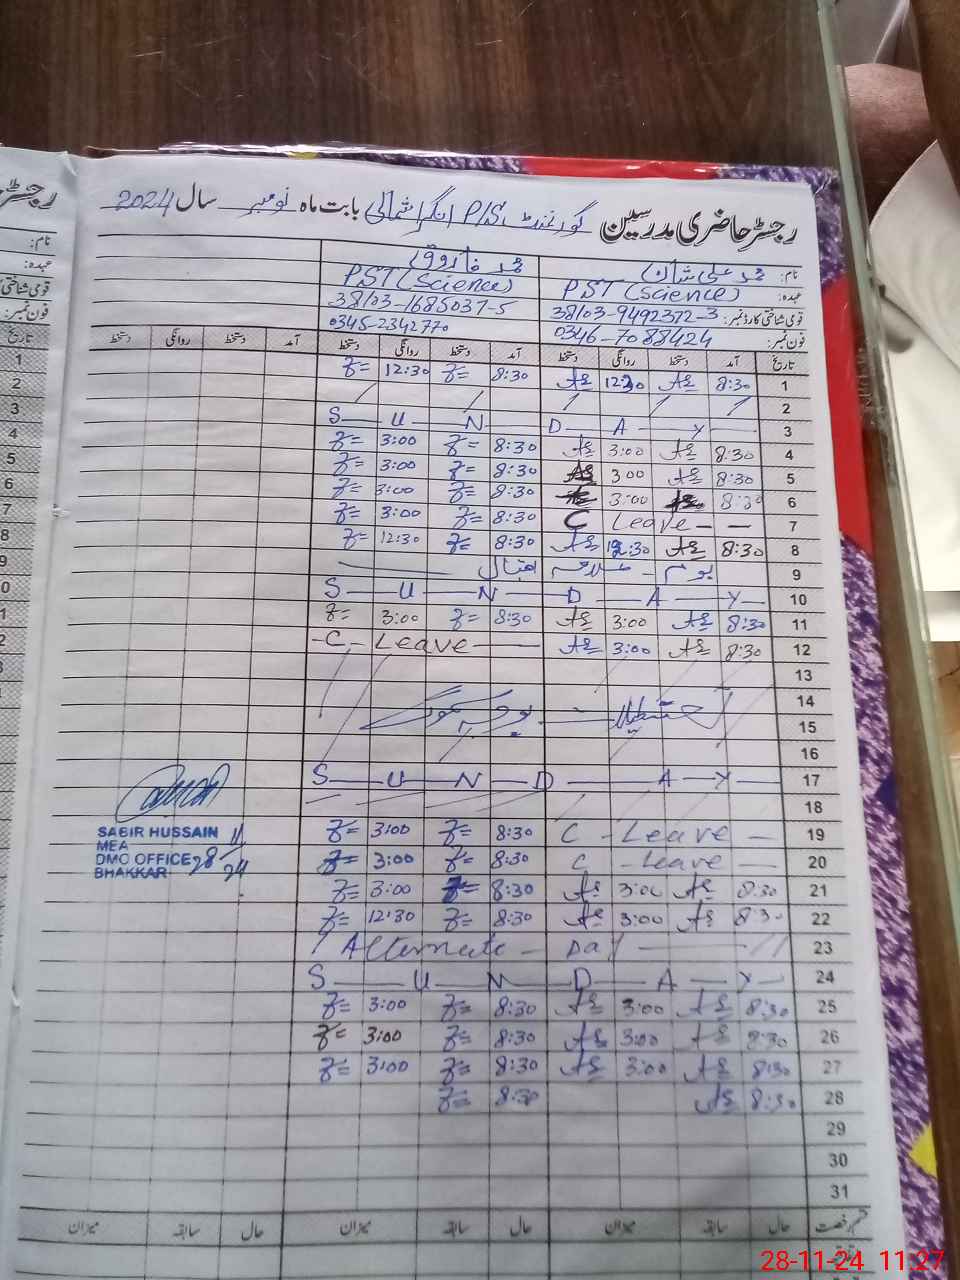 رجسٹر حاضری مدرسین گورنمنٹ P/S انگرا شمالی بابت ماہ نومبر سال 2024
نام: محمد علی شان محمد فاروق
عہدہ: PST (Science) PST (Science)
قومی شناختی کارڈ نمبر: 38103-9492372-3 38103-1685037-5
فون نمبر: 0346-7088424 0345-2342770
تاریخ آمد دستخط روانگی دستخط آمد دستخط روانگی دستخط آمد دستخط روانگی دستخط
1 8:30 12:30 8:30 12:30
2
3 S U N D A Y
4 8:30 3:00 8:30 3:00
5 8:30 3 00 8:30 3:00
6 8:30 3:00 8:30 3:00
7 C Leave 8:30 3:00
8 8:30 12:30 8:30 12:30
9 یوم علامہ اقبال
10 S U N D A Y
11 8:30 3:00 8:30 3:00
12 8:30 3:00 C - Leave
13
14
15
16
17 S U N D A Y
18
19 C - Leave 8:30 3:00
20 C - Leave 8:30 3:00
21 8:30 3:00 8:30 3:00
22 8:30 3:00 8:30 12:30
23 Alternate - Day
24 S U N D A Y
25 8:30 3:00 8:30 3:00
26 8:30 3:00 8:30 3:00
27 8:30 3:00 8:30 3:00
28 8:30 8:30
29
30
31
حال سابقہ میزان حال سابقہ میزان حال سابقہ میزان
SABIR HUSSAIN
MEA
DMO OFFICE
BHAKKAR
28/11/24
28-11-24 11:27